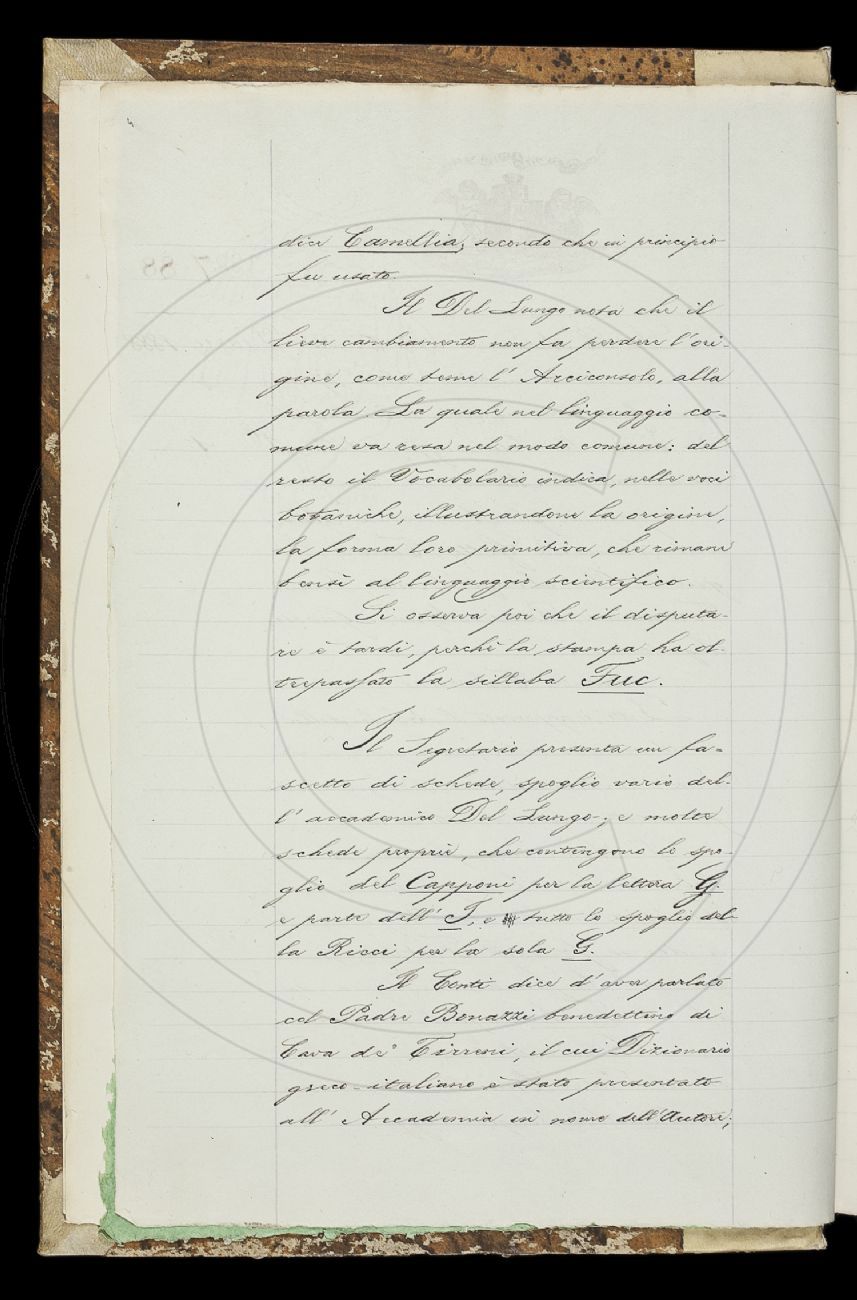 dice Camellia, secondo che in principio
fu usato.
Il Del Lungo nota che il
lieve cambiamento non fa perdere l'ori-
gine, come teme l'Arciconsolo, alla
parola. La quale nel linguaggio co-
mune va resa nel modo comune: del
resto il Vocabolario indica, nelle voci
botaniche, illustrandone la origine,
la forma loro primitiva, che rimane
bensì al linguaggio scientifico.
Si osserva poi che il disputa-
re è tardi, perchè la stampa ha ol-
trepassato la sillaba Fuc.
Il Segretario presenta un fa-
scetto di schede, spoglio vario del-
l'accademico Del Lungo; e molte
schede proprie, che contengono lo spo-
glio del Capponi per la lettera G.
e parte dell'I, e tutto lo spoglio del-
la Ricci per la sola G.
Il Conti dice d'aver parlato
col Padre Bonazzi benedettino di
Cava de' Tirreni, il cui Dizionario
greco-italiano è stato presentato
all'Accademia in nome dell'Autore;